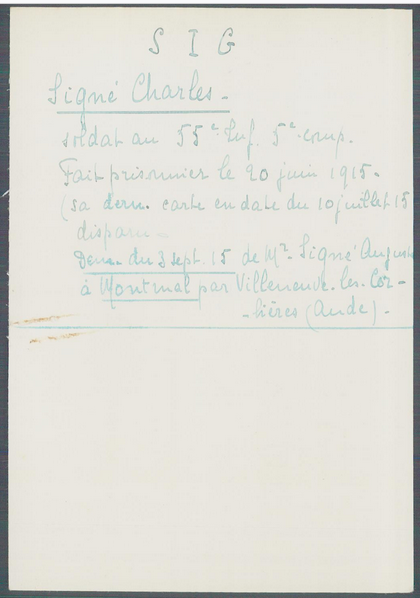 S I G
Signé Charles -
soldat au 55e Inf. 5e comp.
Fait prisonnier le 20 juin 1915 -
(sa dern. carte en date du 10 juillet 15
disparu -
Dem. du 3 sept. 15 de Mr. Signé Auguste
à par Villeneuve-les-Cor-
-bières (Aude) -